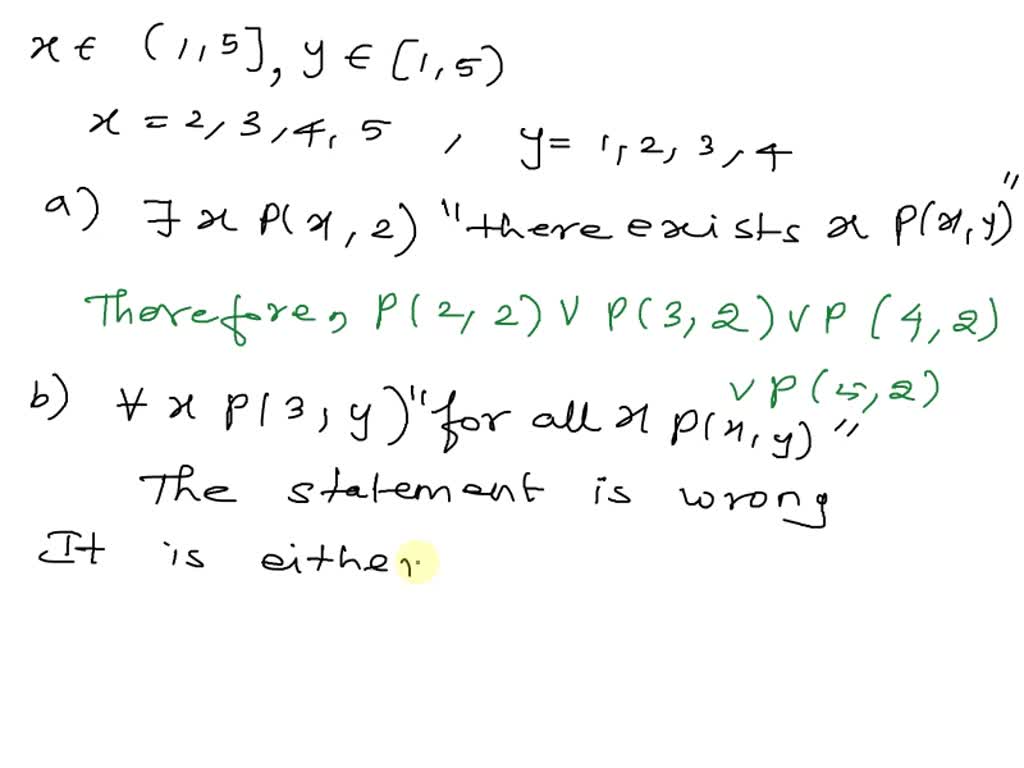 x ∈ (1, 5], y ∈ [1, 5)
x = 2, 3, 4, 5 , y = 1, 2, 3, 4
a) ∃ x P(x, 2) "there exists x P(x, y)"
Therefore, P(2, 2) ∨ P(3, 2) ∨ P(4, 2)
∨ P(5, 2)
b) ∀ x P(3, y) "for all x P(x, y)"
The statement is wrong
It is either